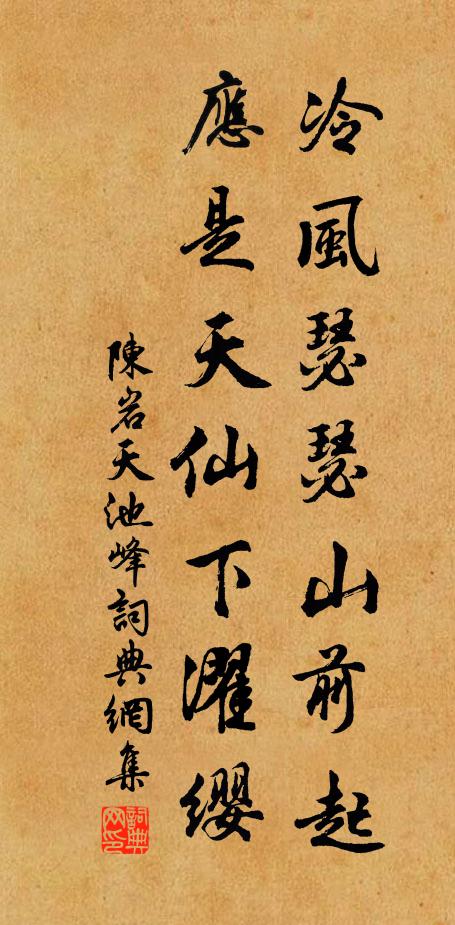 冷風瑟瑟山前起
應是天仙下濯缨
陳岩天池峰詞典網集
詞典网印